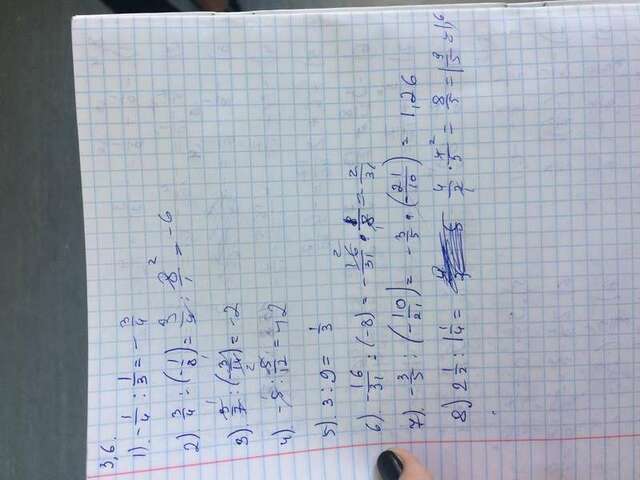 3,6.
1). -1/4 : 1/3 = -3/4
2). 3/4 : (-1/8) = 3/4 : 8/1 = -6
3). 3/7 : (-3/14) = -2
4). -5 : 5/12 = -12
5). 3 : 9 = 1/3
6). -16/31 : (-8) = -16/31 · 1/8 = -2/31
7). -3/5 : (-10/21) = -3/5 · (-21/10) = 1,26
8) 2 1/2 : 1 1/4 = 4/2 · 4/5 = 8/5 = 1 3/5 = 1,6